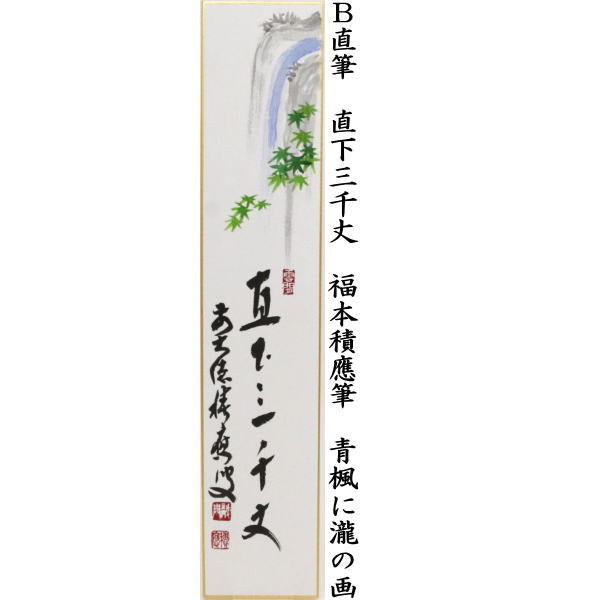 B直筆 直下三千丈 福本積應筆 青楓に瀧の画
直下三千丈
前大徳積應叟